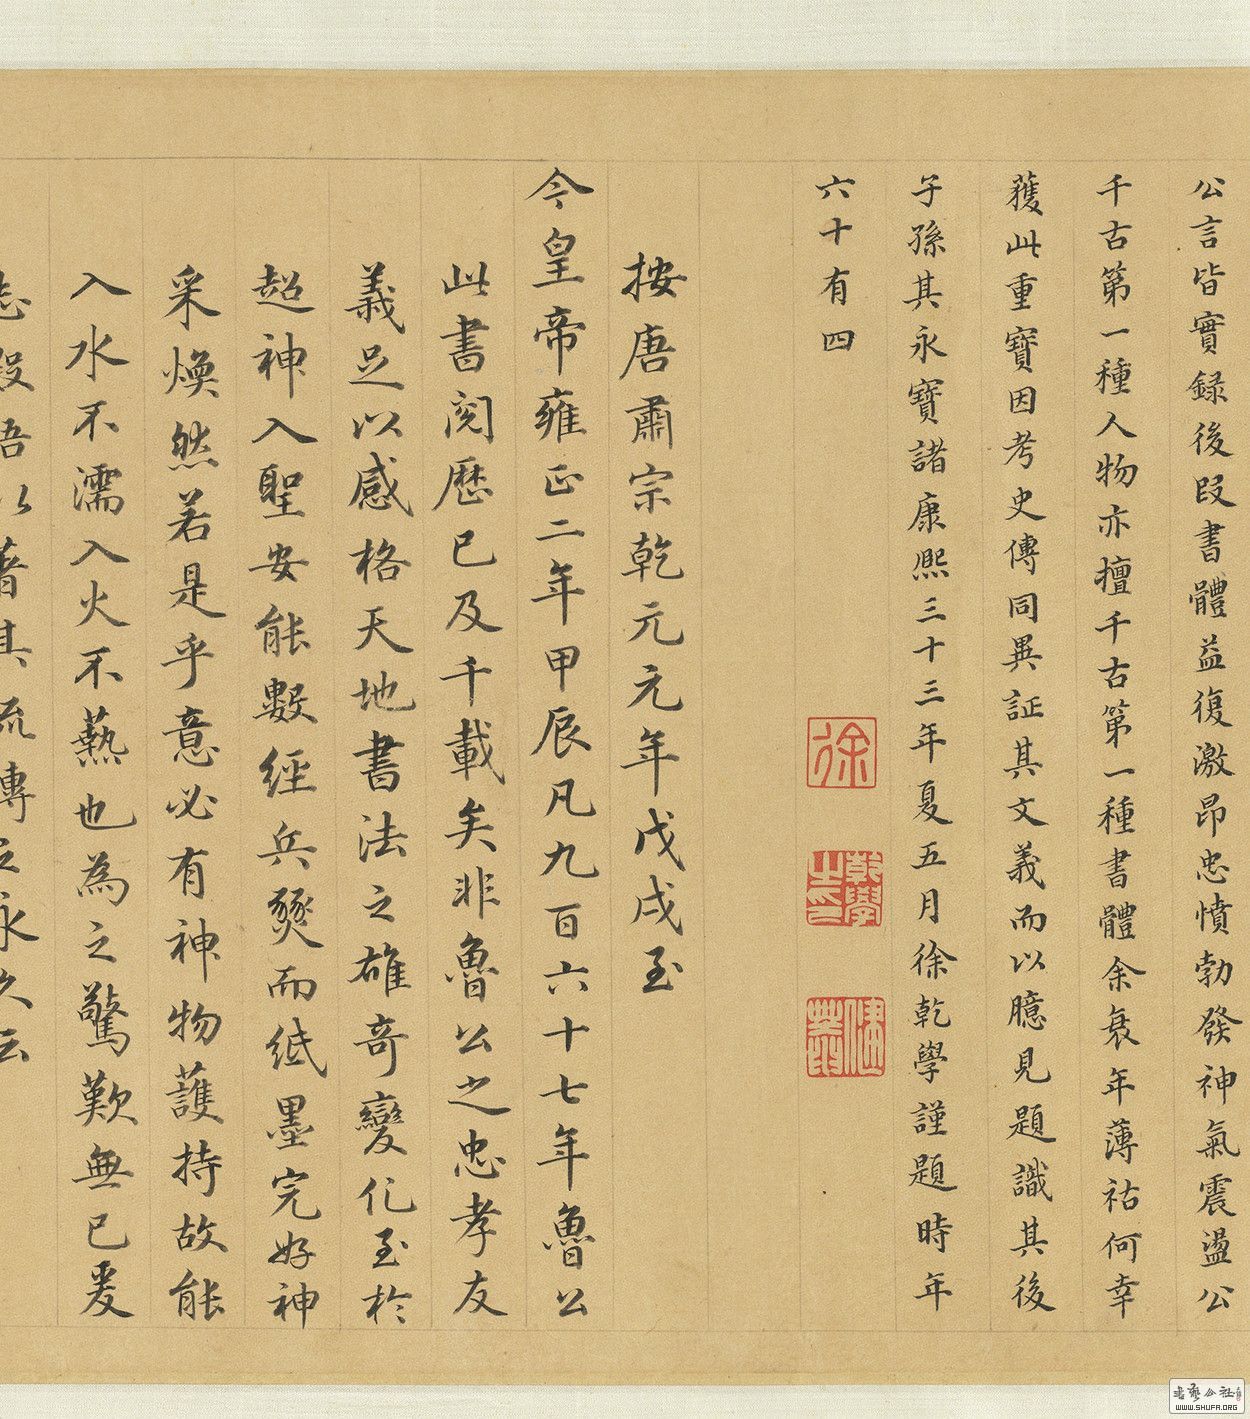 公言皆實録後段書體益復激昂忠憤勃發神氣震盪公
千古第一種人物亦擅千古第一種書體余衰年薄祜何幸
獲此重寶因考史傳同異証其文義而以臆見題識其後
子孫其永寶諸康熙三十三年夏五月徐乾學謹題時年
六十有四
徐
乾學之印
按唐肅宗乾元元年戊戌至
今皇帝雍正二年甲辰凡九百六十七年魯公
此書閱歷已及千載矣非魯公之忠孝友
義足以感格天地書法之雄奇變化至於
超神入聖安能數經兵燹而紙墨完好神
采煥然若是乎意必有神物護持故能
入水不濡入火不爇也為之驚歎無已爰
志段語以著其流傳之永久云
書藝公社
WWW.SHUFA.ORG